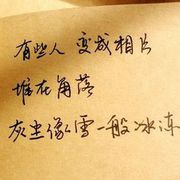 有些人 变成相片
堆在角落
灰尘像雪一般冰冻